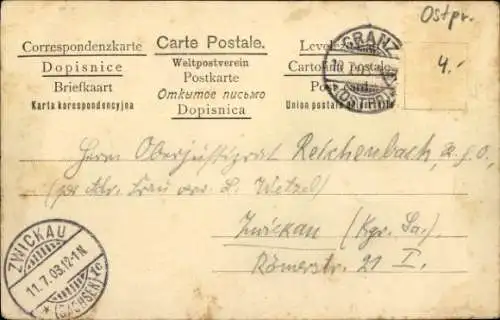 Ostpr.
4.-
Correspondenzkarte
Dopisnice
Briefkaart
Karta korespondencyjna
Carte Postale.
Weltpostverein
Postkarte
Открытое письмо
Dopisnica
Levele
Cartolina postale
Post card
Union postale
CRANZ
(OSTPR.)
Herrn Oberjustizrat Reichenbach,
(pr. Adr. Frau L. Wetzel)
Zwickau (Kgr. Sa.)
Römerstr. 21 I.
ZWICKAU
11.7.03.12-1N
* (SACHSEN) 1c